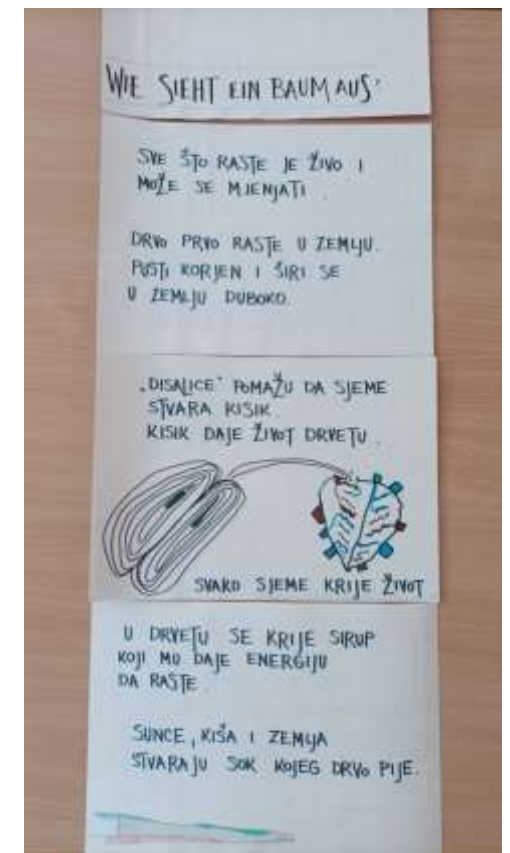 WIE SIEHT EIN BAUM AUS?
SVE ŠTO RASTE JE ŽIVO I
MOŽE SE MJENJATI.
DRVO PRVO RASTE U ZEMLJU.
PUSTI KORJEN I ŠIRI SE
U ZEMLJU DUBOKO.
"DISALICE" POMAŽU DA SJEME
STVARA KISIK.
KISIK DAJE ŽIVOT DRVETU.
SVAKO SJEME KRIJE ŽIVOT
U DRVETU SE KRIJE SIRUP
KOJI MU DAJE ENERGIJU
DA RASTE.
SUNCE, KIŠA I ZEMLJA
STVARAJU SOK KOJEG DRVO PIJE.